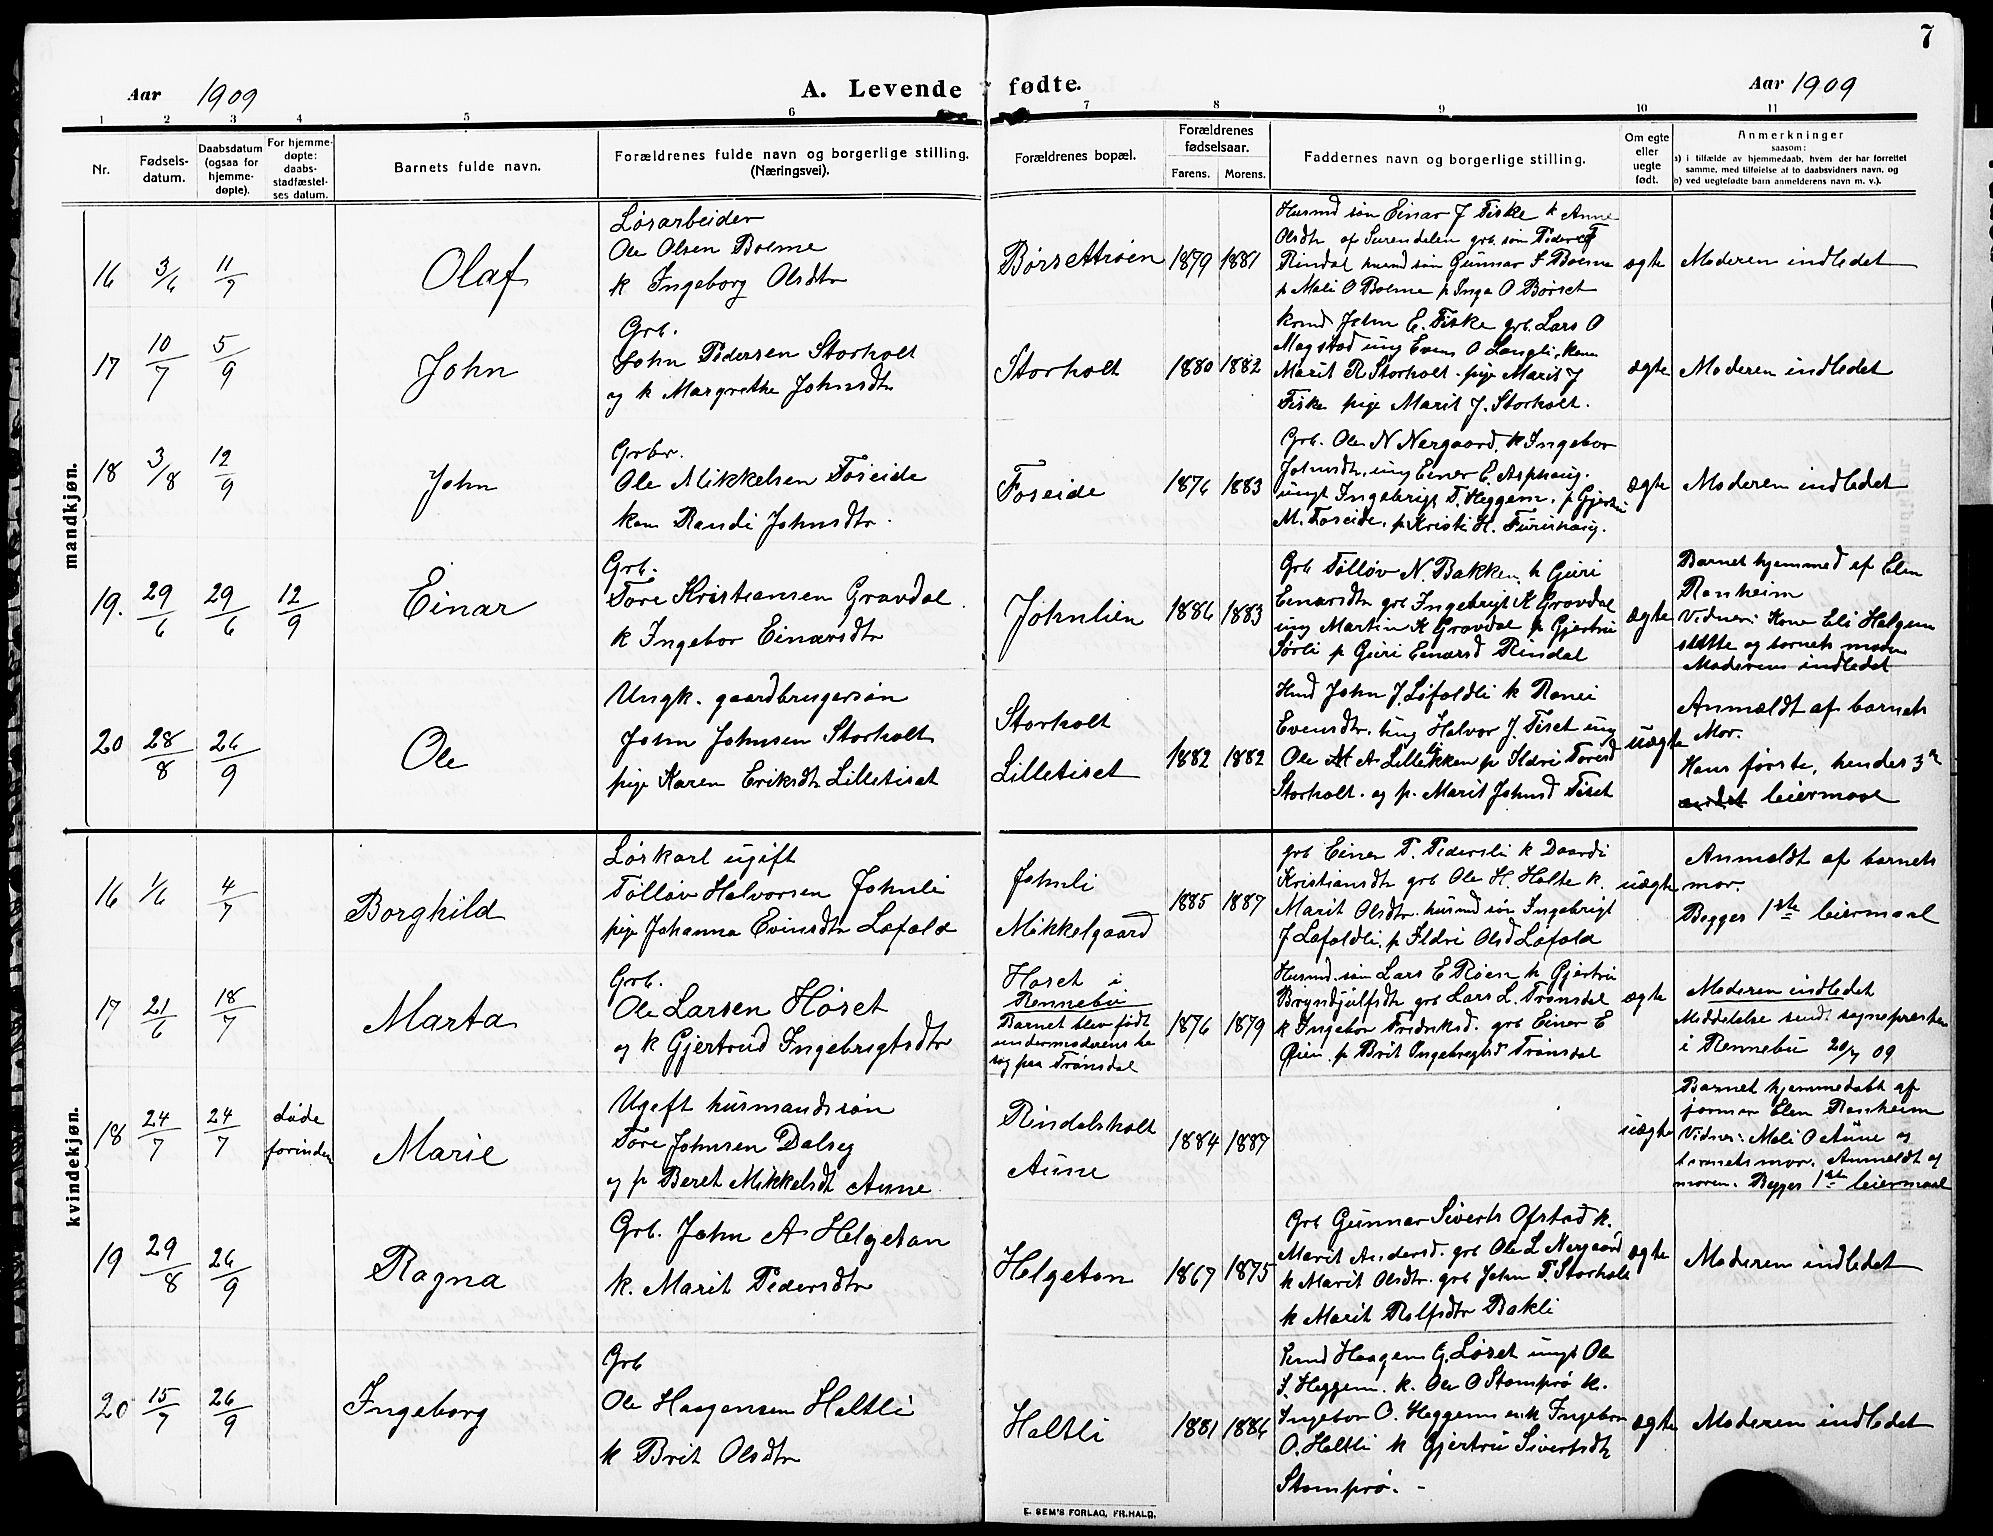 7
Aar 1909
A. Levende fødte.
Aar 1909
1 2 3 4 5 6 7 8 9 10 11
Nr.
Fødsels-
datum.
Daabsdatum
(ogsaa for
hjemme-
døpte).
For hjemme-
døpte:
daabs-
stadfæstel-
ses datum.
Barnets fulde navn.
Forældrenes fulde navn og borgerlige stilling.
(Næringsvei).
Forældrenes bopæl.
Forældrenes
fødselsaar.
Farens. Morens.
Faddernes navn og borgerlige stilling.
Om egte
eller
uegte
født.
Anmerkninger
saasom:
a) i tilfælde av hjemmedaab, hvem der har forrettet
samme, med tilføielse af to daabsvidners navn, og
b) ved uegtefødte barn anmelderens navn m. v.).
mandkjøn.
16
3/6
11/7
Olaf
Løsarbeider
Ole Olsen Bolme
k Ingeborg Olsdtr
Børsettrøen
1879 1881
Husmd søn Einar J Fiske k Anne
Olsdtr af Surendalen grb. søn Peder
Rindal husmd søn Gunnar S Bolme
p Mali O Bolme p Inga O Børset
ægte
Moderen indledet
17
10/7
5/9
John
Grb.
John Pedersen Storholt
og k Margrethe Johnsdtr
Storholt
1880 1882
John E. Fiske grb. Lars O
Magstad ung Even O Langli, kone
Marit R Storholt. pige Marit J
Fiske pige Marit J. Storholt.
ægte
Moderen indledet
18
3/8
12/9
John
Grbr.
Ole Mikkelsen Foseide
kone Randi Johnsdtr.
Foseide
1876 1883
Grb. Ole N Nergaard, k Ingebor
Johnsdtr, ung Einer E. Asphaug.
ungk Ingebrigt T. Heggem, p Gjertru
M. Foseide, p Kristi H. Furuhaug.
ægte
Moderen indledet
19.
29/6
29/6
12/9
Einar
Grb.
Tore Kristiansen Gravdal
k Ingebor Einarsdtr
Johnlien
1886 1883
Grb Tølløv N. Bakken, k Guri
Einarsdtr grb Ingebrigt K Gravdal
ung Martin K Gravdal p Gjertru
Sørli p Guri Einarsd Rindal
ægte
Barnet hjemmed af Elen
Ranheim
Vidner: Kone Eli Helgem
slette og barnets moder
Moderen indledet
20
28/8
26/9
Ole
Ungk. gaardbrugersøn
John Johnsen Storholt
pige Karen Eriksdtr Lilletiset
Storholt
Lilletiset
1882 1882
Husmd John J. Løfaldli k Ranei
Evensdtr. ung Halvor J. Tiset ung
Ole A Lillebkken p Ildri Toresd
Storholt. og p. Marit Johnsd Tiset
uægte
Anmeldt af barnets
Mor.
Hans første, hendes 3die
andet leiermaal
kvindekjøn.
16
1/6
4/7
Borghild
Løskarl ugift
Tølløv Halvorsen Johnli
pige Johanna Evensdtr Løfald
Johnli
Mikkelgaard
1885 1887
grb Einer T. Pedersli k Daardi
Kristiansdtr grb Ole H. Holte k.
Marit Olsdtr. husmd søn Ingebrigt
J Løfaldli, p Ildri Olsd Løfald
uægte
Anmeldt af barnets
mor.
Begges 1ste leiermaal
17
21/6
18/7
Marta
Grb.
Ole Larsen Høset
og k Gjertrud Ingebrigtsdtr
Høset i
Rennebu
Barnet blev født
under moderens be
søg paa Trønsdal
1876 1879
Husmd. søn Lars E Røen k Gjertru
Bryndjulfsdtr grb Lars L. Trønsdal
k Ingebor Fredriksd. grb Einer E
Øien p Brit Ingebrigtsd Trønsdal
ægte
Moderen indledet
Meddelelse sendt sogneprestn
i Rennebu 20/7 09
18
24/7
24/7
døde
forinden
Marie
Ugift husmandssøn
Tore Johnsen Dalseg
og p Beret Mikkelsdt Aune
Rindalsholt
Aune
1884 1887
uægte
Barnet hjemmedøbt af
jormor Elen Ranheim
Vidner: Mali O Aune og
barnets mor. Anmeldt af
moren. Begges 1ste leiermaal
19
29/8
26/9
Ragna
Grb. John A Helgetan
k. Marit Pedersdtr
Helgetan
1867 1875
Grb Gunnar Siverts Ofstad k.
Marit Andersd. grb Ole L Nergaard
k Marit Olsdtr. grb John T. Storholt
k Marit Rolfsdtr Bakli
ægte
Moderen indledet
20
15/7
26/9
Ingeborg
Grb
Ole Haagensen Haltli
k Brit Olsdtr
Haltli
1881 1886
Haagen G. Løset ungk Ole
I. Heggem. k. Ole O Stomprø k.
Ingebor O. Heggem enk Ingebor
O. Haltli k Gjertru Sivertsdtr
Stomprø.
ægte
Moderen indledet
E. SEM'S FORLAG, FR.HALD.